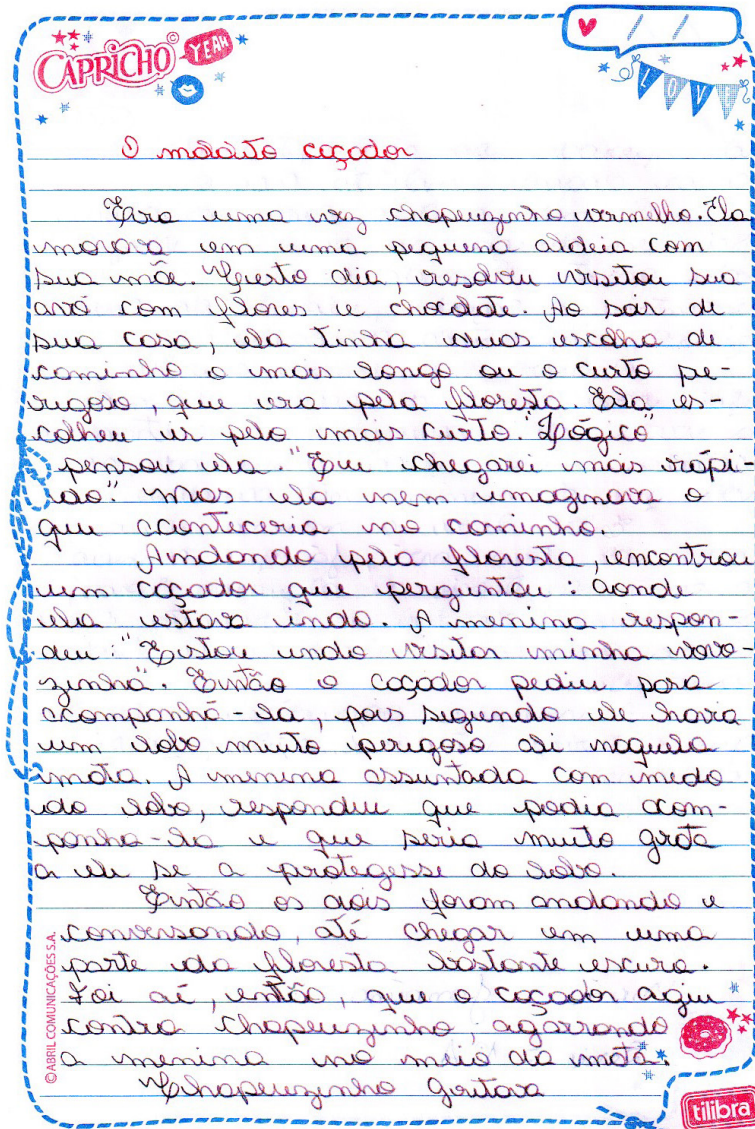 CAPRICHO©
YEAH
/ /
LOVE
O maldito caçador
Era uma vez chapeuzinho vermelho. Ela
morava em uma pequena aldeia com
sua mãe. Certo dia, resolveu visitou sua
avó com flores e chocolate. Ao sair de
sua casa, ela tinha duas escolha de
caminho o mais longo ou o curto pe-
rigoso, que era pela floresta. Ela es-
colheu ir pelo mais curto. "Lógico"
pensou ela. "Eu chegarei mais rápi-
do." mas ela nem imaginava o
que aconteceria no caminho.
Andando pela floresta, encontrou
um caçador que perguntou: aonde
ela estava indo. A menina respon-
deu: "Estou indo visitar minha vovo-
zinha". Então o caçador pediu para
acompanhá-la, pois segundo ele havia
um lobo muito perigoso ali naquela
mata. A menina assuntada com medo
do lobo, respondeu que podia acom-
panha-la e que seria muito grata
a ele se a protegesse do lobo.
Então os dois foram andando e
conversando, até chegar em uma
parte da floresta bastante escura.
Foi aí, então, que o caçador agiu
contra chapeuzinho, agarrando
a menina no meio da mata.
Chapeuzinho gritava
©ABRIL COMUNICAÇÕES S.A.
tilibra